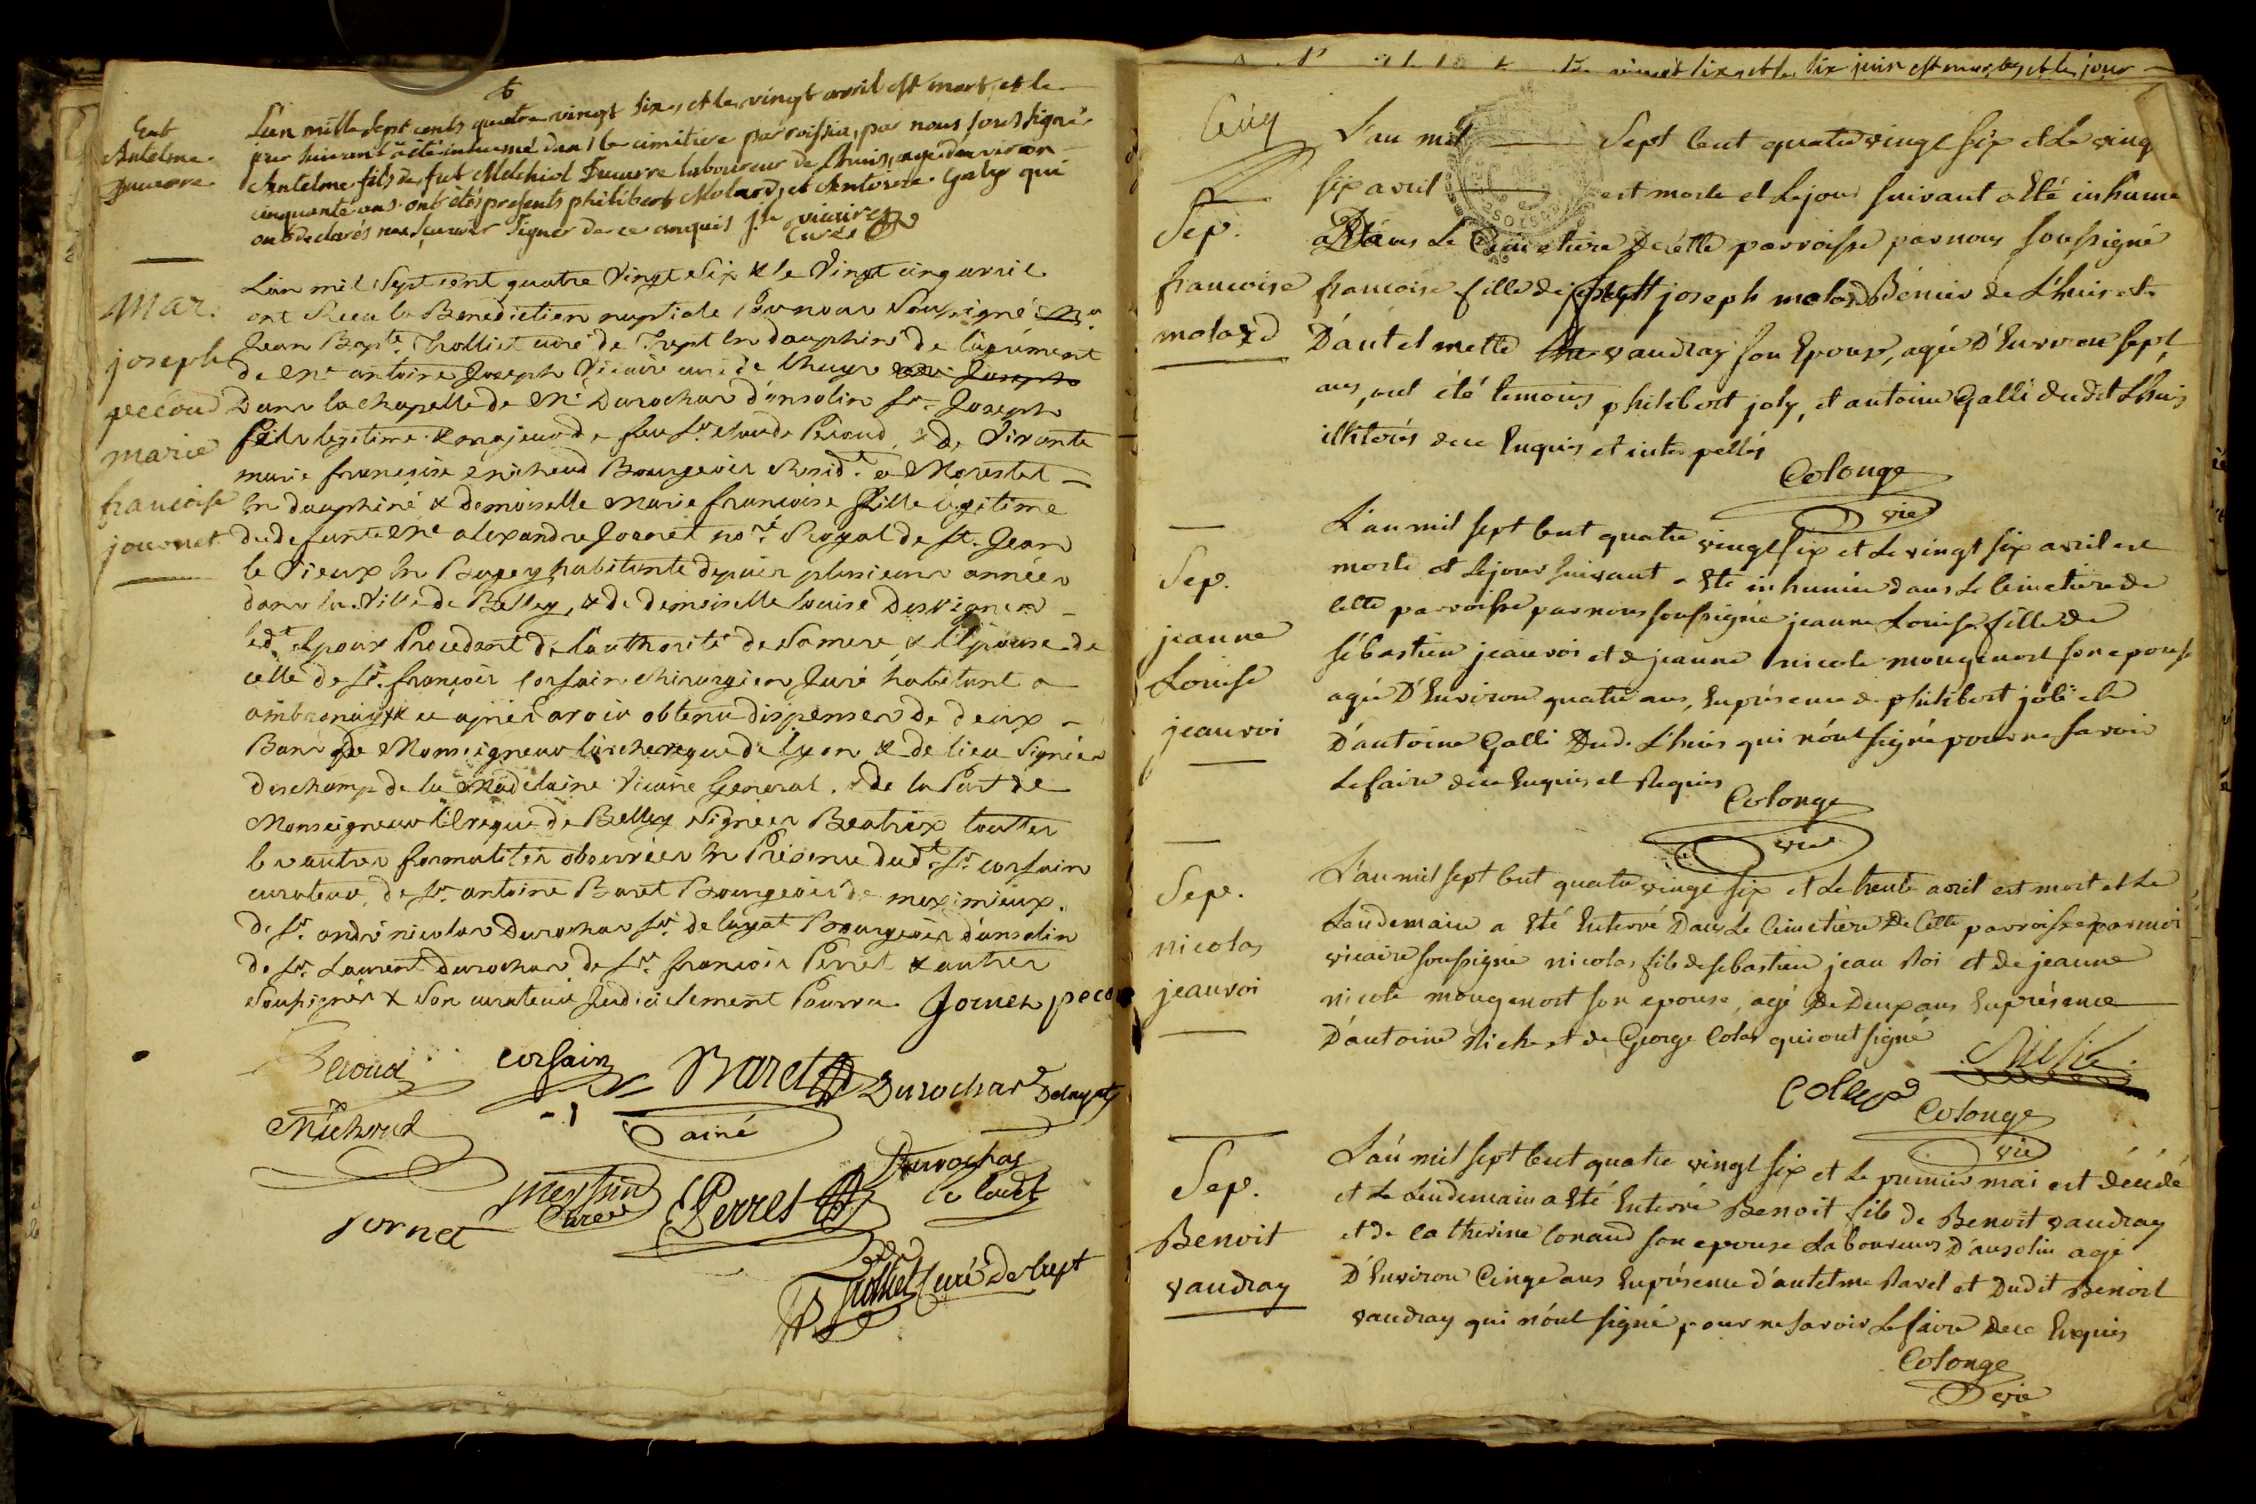 Ent
Antelme
L'an mille sept cents quatre vingt six, et le vingt avril est mort, et le
jour suivant a été inhumé dans le cimitiere parroissial, par nous soussigné
Antelme fils de fut Melchiol laboureur de Lhuis, agé d'environ
cinquante ans ont étés presents philibert Molard, et Antoine Galy qui
ont declarés ne sçavoir signer de ce enquis j.h vicaire
Curé
Mar.
joseph
pecoud
marie
francoise
journet
L'an mil sept cent quatre vingt six & le vingt cinq avril
ont Recu la Benediction nuptiale Par nous Soussigné
Jean Bapte Trolliet curé de Trept en dauphiné de l'agrément
de Mre antoine Joseph Vicaire curé de Lhuys
Dans la chapelle de Mr Durochas d'ansolin Sr Joseph
fils légitime & majeur de feu Sr claude Pecoud, & de vivante
marie francoise michoud Bourgeois & resid.t a Morestel
En dauphiné & demoiselle Marie francoise fille légitime
du defunt Me alexandre Jornet no.re Royal de St. Jean
le Vieux En Bugey, habitante depuis plusieurs années
dans la Ville de Belley, & de demoiselle louise Desvignes
led.t Epoux Procedant de l'authorité de sa mere, & l'Epouse de
celle de Sr. françois corsain chirurgien Juré habitant a
ambronay & ce après avoir obtenu dispenses de deux
Bans de Monseigneur l'archeveque de lyon & de lieu Signées
deschamp de la Madelaine Vicaire General. & de la Part de
Monseigneur l'Eveque de Belley Signées Beatrix touttes
les autres formalités observées En Présence dud.t Sr corsain
curateur, de Sr. antoine Baret Bourgeois de meximieux.
de Sr. andré nicolas Durochas Sr. de lagat Bourgeois d'ansolin
de Sr. Laurent durochas de Sr. françois Perret & autres
Soussignés & Son curateur Judiciclement Pourvu. Jornet peco
Pecoud corsain Baret Durochas Delayat
Michoud ainé
Durochas
Le cadet
Jornet Curé Perret
Trolliet Curé de trept
vingt six et le six juin est mort, et le jour
Cinq
Sep.
francoise
molard
L'an mil sept cent quatre vingt six et le vingt
six avril est morte et le jour suivant a été inhumé
Dans le Cimetiere de cette parroisse par nous soussigné
francoise fille de joseph molard Bénier de L'huis et
D'antelmette vaudray son Epouse, agée D'Environ sept
ans, ont été temoins philibert joly, et antoine Galli dudit Lhuis
illiterés de ce Enquis et interpellés
Colonge
vic
Sep.
jeanne
Louise
jeanroi
L'an mil sept cent quatre vingt six et le vingt six avril est
morte et le jour suivant a Eté inhumée dans le Cimetiere de
cette parroisse par nous soussigné jeanne Louise fille de
sébastien jeanroi et de jeanne nicole mougenost son epouse
agée D'Environ quatre ans, En présence de philibert joli et de
D'antoine Galli Dud. L'huis qui n'ont signé pour ne savoir
le faire de ce Enquis et Requis
Colonge
vic
Sep.
nicolas
jeanroi
L'an mil sept cent quatre vingt six et le trente avril est mort et le
Lendemain a Eté Enterré Dans Le Cimetière De Cette parroisse par moi
vicaire soussigné nicolas fils de sebastien jean Roi et de jeanne
nicole mougenost son epouse, agé De Deux ans En présence
D'antoine Riche et de George Colas qui ont signé
Riche
Colas
Colonge
vic
Sep.
Benoit
vaudray
L'an mil sept cent quatre vingt six et Le premier mai est décédé
et Le Lendemain a Eté Enterré Benoit fils de Benoit vaudray
et de Catherine Conand son epouse Laboureurs D'ansolin agé
D'Environ Cinq ans En présence d'antelme Ravel et Dudit Benoit
vaudray qui n'ont signé pour ne savoir Le faire De ce Enquis
Colonge
vic